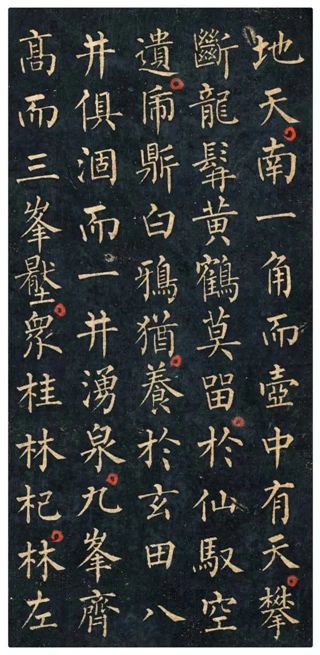 地天南一角而壺中有天攀
斷龍髯黃鶴莫留於仙馭空
遺鼏鼎白鴉猶養於玄田八
井俱涸而一井湧泉九峯齊
高而三峯壓衆桂林杞林左